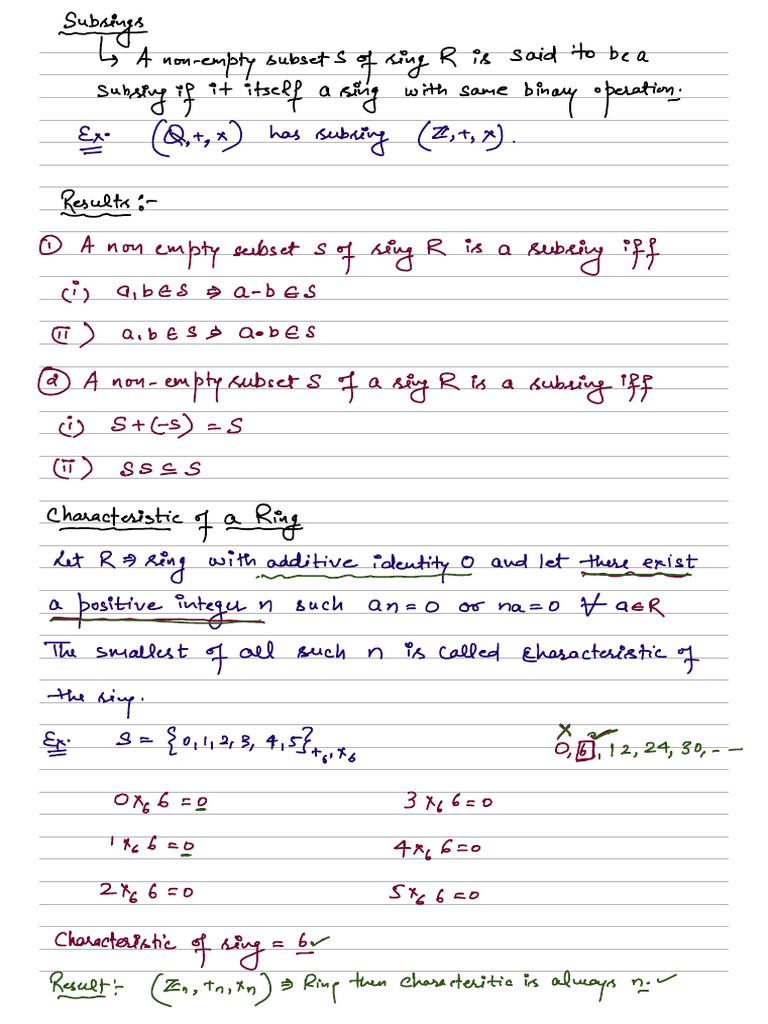 Subrings
↳ A non-empty subset S of ring R is said to be a
subring if it itself a ring with same binary operation.
Ex. (ℚ,+,×) has subring (ℤ,+,×).
Results:-
① A non empty subset S of ring R is a subring iff
(i) a,b∈S ⇒ a-b∈S
(ii) a,b∈S ⇒ a•b∈S
② A non-empty subset S of a ring R is a subring iff
(i) S+(-S) = S
(ii) SS ⊆ S
Characteristic of a Ring
Let R ⇒ ring with additive identity 0 and let there exist
a positive integer n such an=0 or na=0 ∀ a∈R
The smallest of all such n is called characteristic of
the ring.
Ex. S = {0,1,2,3,4,5}+₆,×₆ × ✓ 0,6,12,24,30,---
0×₆6=0 3×₆6=0
1×₆6=0 4×₆6=0
2×₆6=0 5×₆6=0
Characteristic of ring = 6✓
Result:- (ℤn,+n,×n) ⇒ Ring then characteritic is always n.✓